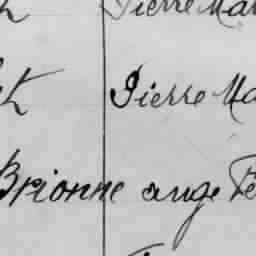 Pierre Ma
Pierre Ma
Brionne ange Fe